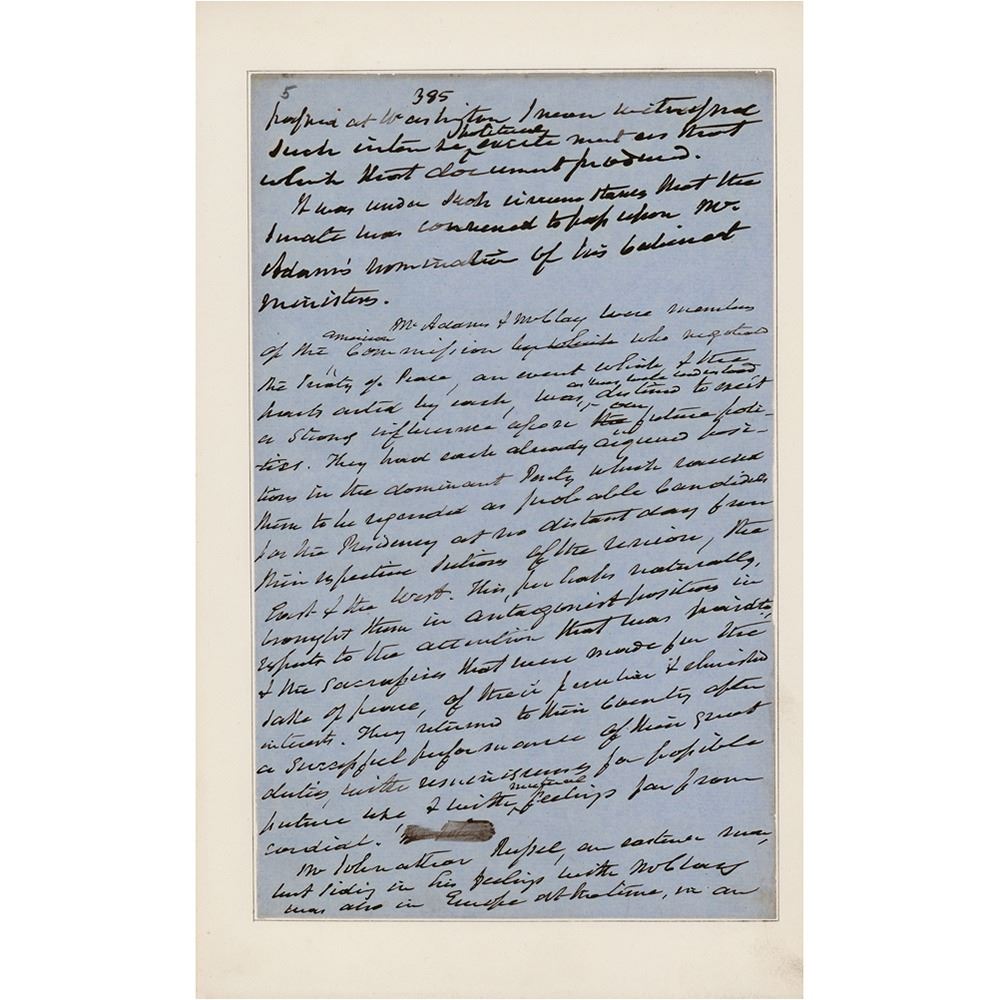 5
385
passed at Washington I never witnessed
such intense political excitement as that
which that document produced.
It was under such circumstances that the
Senate was convened to pass upon Mr
Adams's nomination of his Cabinet
ministers.
Mr Adams & Mr Clay were members
of the American Commission by which who negotiated
the Treaty of Peace, an event which, & the
parts acted by each, was, as was well understood destined to exert
a strong influence upon the our future poli-
tics. They had each already acquired posi-
tions in the dominant Party which caused
them to be regarded as probable Candidates
for the Presidency at no distant day from
their respective Sections of the Union, the
East & the West. This, perhaps naturally,
brought them in antagonist positions in
respects to the attention that was paid to,
& the sacrifices that were made for the
sake of peace, of their peculiar & cherished
interests. They returned to their Country after
a successful performance of their great
duties, with reminiscences for possible
future use, & with mutual feelings far from
cordial.
Mr Johnathan Russel, an eastern man,
but siding in his feelings with Mr Clay
was also in Europe at the time, in an